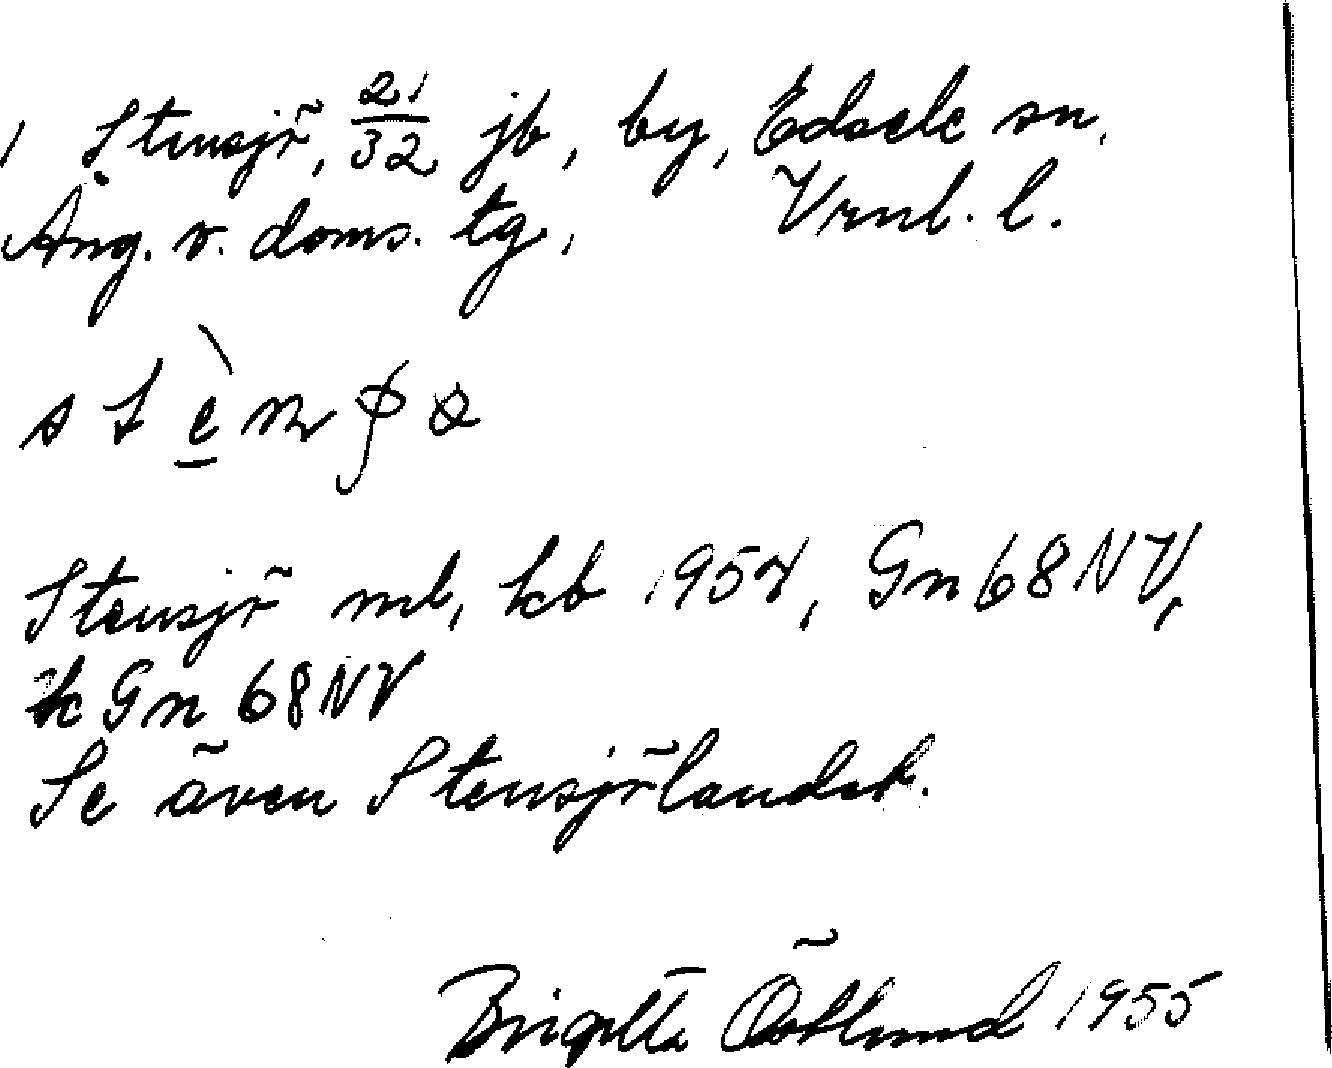 Stensjö, 21/32 jb, by, Edsele sn,
Ång. v. doms. tg, Vrnl. l.
Stensjö ml, kb 1954, Gn 68 NV,
k Gn 68 NV
Se även Stensjölandet.
Birgitta Östlund 1955